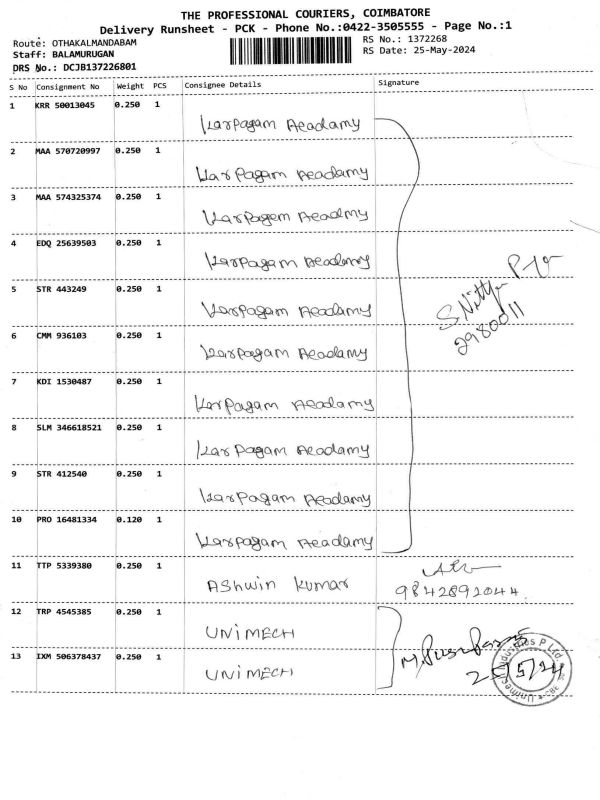 THE PROFESSIONAL COURIERS, COIMBATORE
Delivery Runsheet - PCK - Phone No.:0422-3505555 - Page No.:1
Route: OTHAKALMANDABAM
RS No.: 1372268
Staff: BALAMURUGAN
RS Date: 25-May-2024
DRS No.: DCJB137226801
S No Consignment No Weight PCS Consignee Details Signature
1 KRR 50013045 0.250 1 Karpagam Acadamy
2 MAA 570720997 0.250 1 Karpagam Acadamy
3 MAA 574325374 0.250 1 Karpagem Acadmy
4 EDQ 25639503 0.250 1 Karpagam Acadamy
5 STR 443249 0.250 1 Karpagam Acadamy
S. Nithya
2980011
6 CMM 936103 0.250 1 Karpagam Acadamy
7 KDI 1530487 0.250 1 Karpagam Acadamy
8 SLM 346618521 0.250 1 Karpagam Acadamy
9 STR 412540 0.250 1 Karpagam Acadamy
10 PRO 16481334 0.120 1 Karpagam Acadamy
11 TTP 5339380 0.250 1 Ashwin Kumar 9842892044
12 TRP 4545385 0.250 1 UNIMECH
13 IXM 506378437 0.250 1 UNIMECH
25/5/24
Unimech Industries P Ltd
CBE